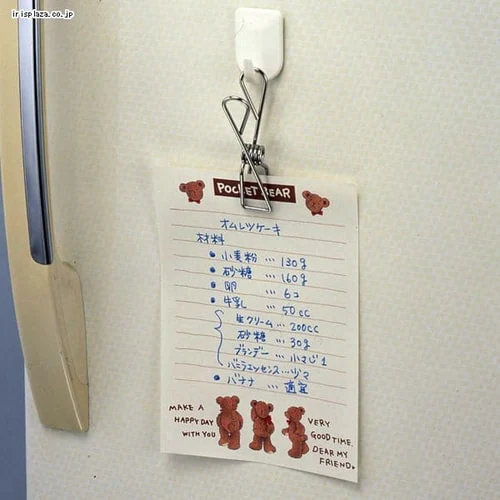 ir.isplaza.co.jp
POCKET BEAR
オムレツケーキ
材料
● 小麦粉 … 130g
● 砂糖 … 160g
● 卵 … 6コ
● 牛乳 … 50cc
生クリーム … 200cc
砂糖 … 30g
ブランデー … 小さじ1
バニラエッセンス …
● バナナ … 適宜
MAKE A
HAPPY DAY
WITH YOU
VERY
GOOD TIME.
DEAR MY
FRIEND.